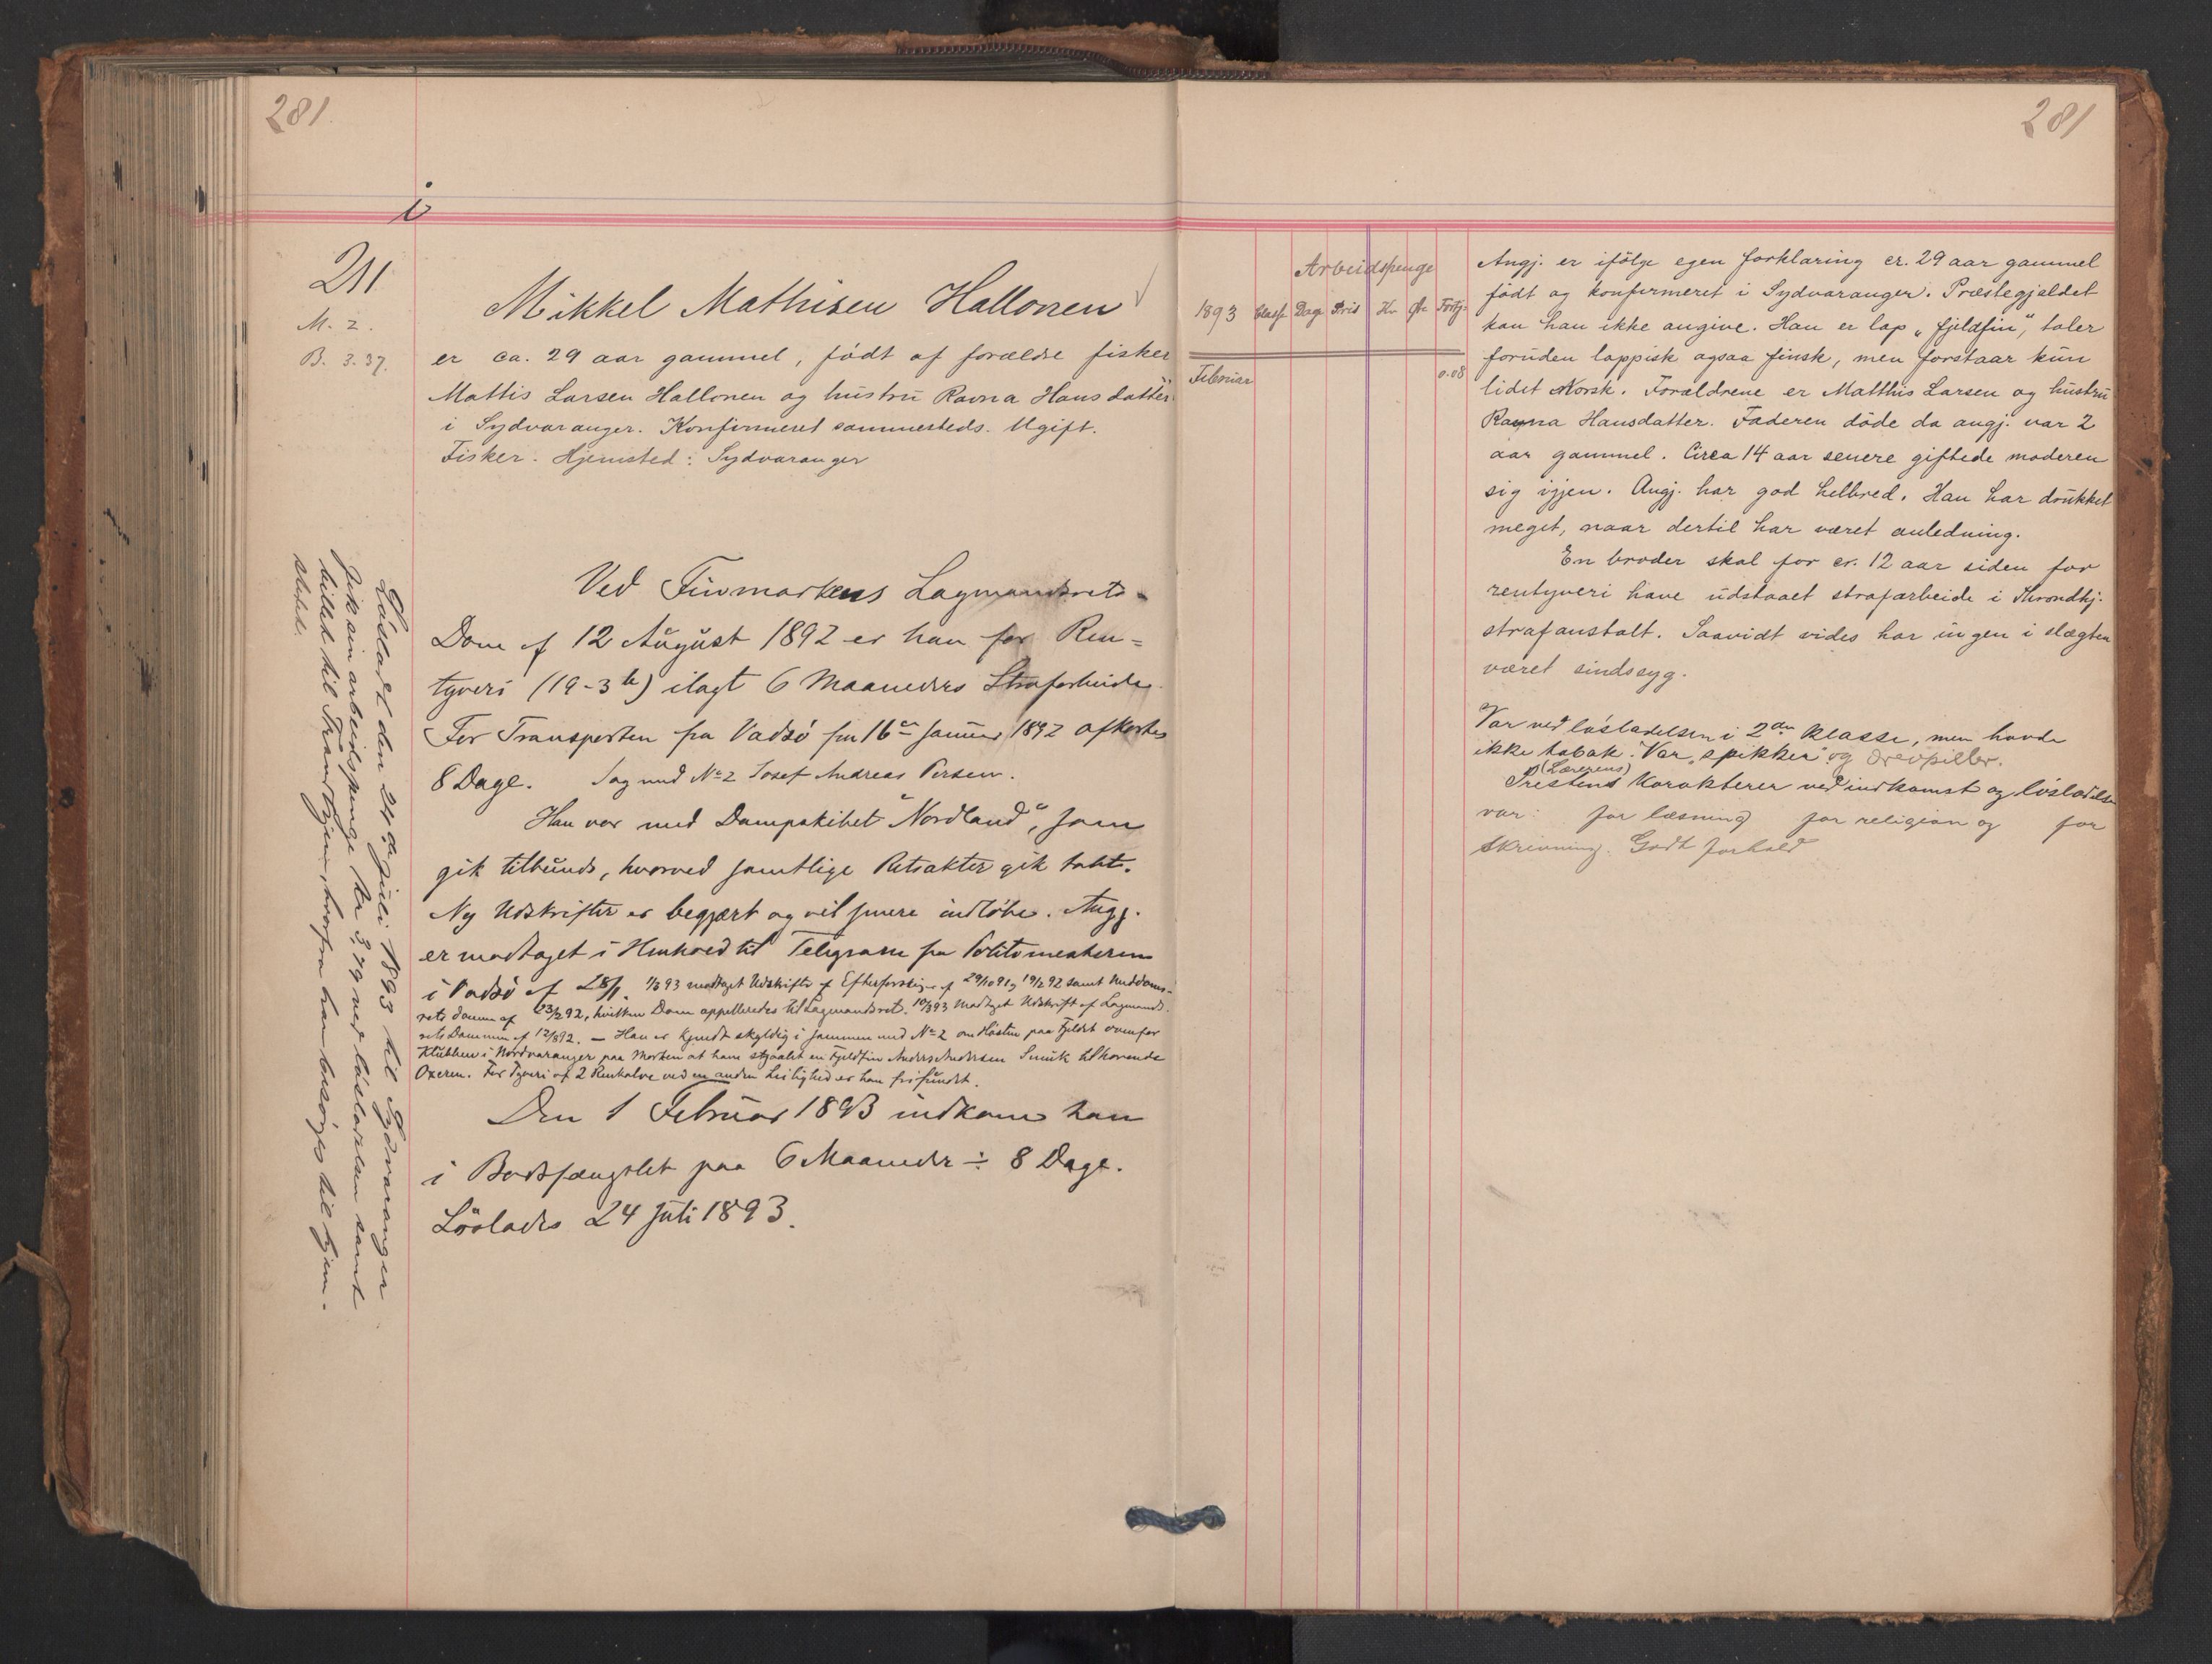 281
i
211
M. 2.
B. 3.37.
Mikkel Mathisen Hallonen
er ca. 29 aar gammel, födt af forældre fisker
Mattis Larsen Hallonen og hustru Ravna Hansdatter
i Sydvaranger. Konfirmeret sammesteds. Ugift.
Fisker. Hjemsted: Sydvaranger
Ved Finmarkens Lagmandsrets-
Dom af 12 August 1892 er han for Ren-
tyveri (19-3 ) ilagt 6 Maaneders Strafarbeide.
For Transporten fra Vadsö fra 16de Januar 1892 afkortes
8 Dage. Sag med No 2 Josef Andreas Persen.
Han var med Dampskibet "Nordland", som
gik tilbunds, hvorved samtlige Retsakter gik tabt.
Ny Udskrifter er begjært og vil senere indlöbe. Angj.
er modtaget i Henhold til Telegram fra Politimesteren
i Vadsö af 28/1. 1/3 93 modtaget Udskrifter af Efterforskninger af 29/10 91, 19/2 92 samt Meddoms-
rets dom af 23/2 92, hvilken Dom appelleredes til Lagmandsret. 10/3 93 Modtaget Udskrift af Lagmands-
rets Dommen af 12/8 92. — Han er kjendt skyldig i sammen med No 2 om Hösten paa Fjeldet ovenfor
Klubben i Nordvaranger paa Morten at have stjaalet en Fjeldfin Anders Andersen Smuk tilhörende
Oxeren. For Tyveri af 2 Renkalve ved en anden Leilighed er han frifundet.
Den 1 Februar 1893 indkom han
i Bodsfængslet paa 6 Maaneder ÷ 8 Dage.
Löslades 24 Juli 1893.
Lösladt den 24de Juli 1893 til Sydvaranger
fik sin arbeidspenge Kr 3,79 ved lösladelsen samt
billet til Trondhjem, hvorfra han besörges til hjem-
stedet.
281
Arbeidspenge
1893 Classe Dage Pris Kr Öre Fortj.
Februar 0.08
Angj. er ifölge egen forklaring cr. 29 aar gammel
födt og konfirmeret i Sydvaranger. Præstegjældet
kan han ikke angive. Han er lap „fjeldfin", taler
foruden lappisk ogsaa finsk, men forstaar kun
lidet Norsk. Forældrene er Matthis Larsen og hustru
Ravna Hansdatter. Faderen döde da angj. var 2
aar gammel. Circa 14 aar senere giftede moderen
sig igjen. Angj. har god helbred. Han har drukket
meget, naar dertil har været anledning.
En broder skal for cr. 12 aar siden for
rentyveri have udstaaet strafarbeide i Throndhj.
strafanstalt. Saavidt vides har ingen i slægten
været sindssyg.
Var ved lösladelsen i 2den klasse, men havde
ikke tobak. Var "spikker" og drevpiller.
(Lærerens)
Prestens Karakterer ved indkomst og lösladelse
var: for læsning for religion og for
skrivning. Godt forhold